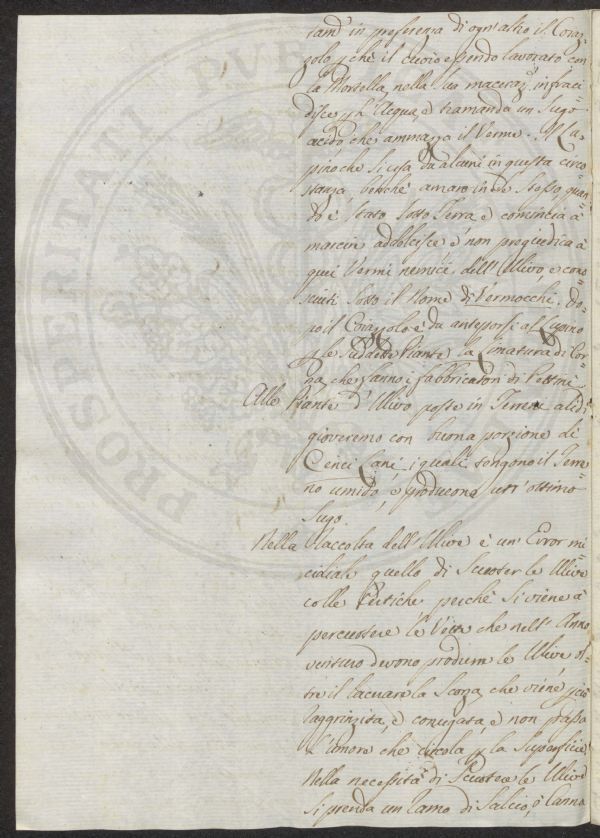 tam' in preferenza di ogn' altro il Coraz=
zolo, che il cuoio essendo lavorato con
la Mortella, nella sua maceraz.e infraci=
disce l'Acqua, e tramanda un Sugo
acido che ammazza il Verme. Il Lu=
pino che si usa da alcuni in questa circo=
stanza, benché amaro in se stesso quan=
do è stato sotto Terra, e comincia à
marcire addolcisce e non pregiudica à
quei Vermi nemici dell'Ulivo, e cono=
sciuti sotto il Nome di Vermocchi. Do=
po il Corazzolo è da anteporsi al Lupino
le suddette Piante la Limatura di Cor=
na che fanno i fabbricatori di Pettini
Alle Piante d'Ulivo poste in Terreni aridi
gioveremo con buona porzione di
Cenci Lani, i quali tengono il Terre=
no umido, e producono un'ottimo
Sugo.
Nella Raccolta dell'Ulive è un Error mi=
cidiale quello di Scuoter le Ulive
colle Pertiche perchè si viene à
percuotere le Vette che nell'Anno
venturo devono produrre le Ulive ol=
tre il lacerare la Scorza, che viene
raggrinzita, e corrugata, e non passa
l'umore che circola la Superficie
Nella necessità di Scuoter le Ulive
si prenda un ramo di Salcio, ò Canna
PROSPERITATI PVB